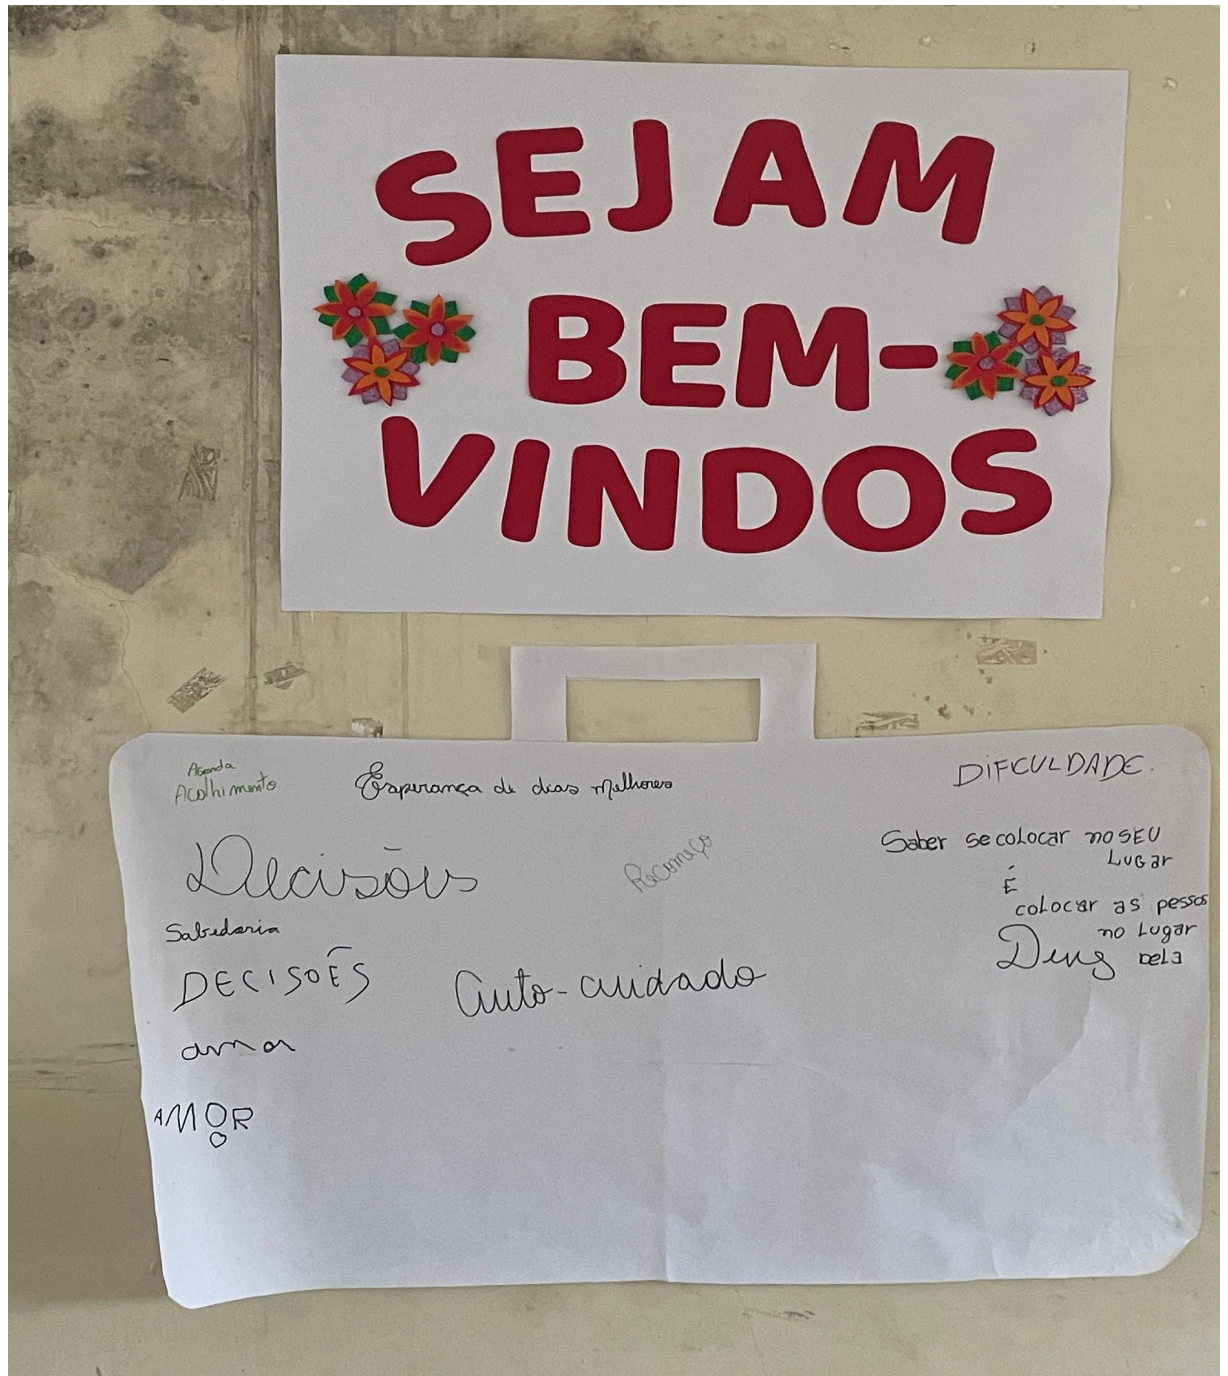 SEJAM
BEM-
VINDOS
Agenda
Acolhimento
Esperança de dias melhores
DIFICULDADE.
Decisões
Recomeço
Saber se colocar no SEU
LUGar
É
colocar as pessos
no Lugar
dela
Sabedoria
DECISOẼS
Auto-cuidado
Deus
amor
AMOR